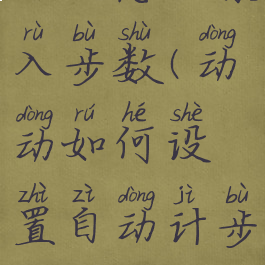 rù bù shù dòng
入步数(动
dòng rú hé shè
动如何设
zhì zì dòng jì bù
置自动计步